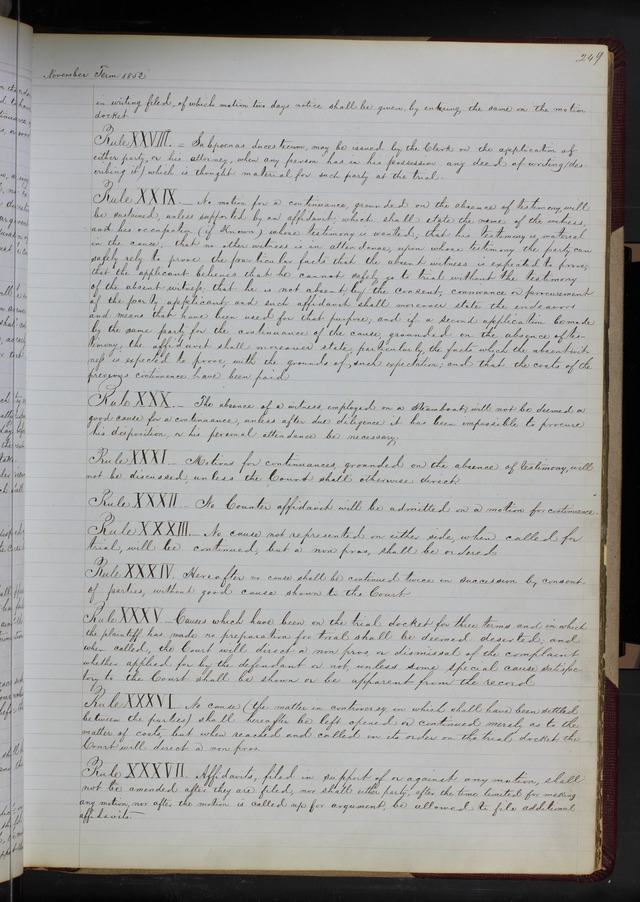 249
November Term 1852
in writing filed, of which motion two days notice shall be given, by entering, the same on the motion
docket.
Rule XXVIII. = Subpoenas duces tecum, may be issued by the Clerk on the application of
either party, or his attorney, when any person has in his possession any deed of writing (des
cribing it) which is thought material for such party at the trial.
Rule XXIX. — No motion for a continuance, grounded on the absence of testimony will
be sustained, unless supported by an affidavit, which shall state the name of the witness,
and his occupation (if known) whose testimony is wanted, that his testimony is material
in the cause; that no other witness is in attendance, upon whose testimony the party can
safely rely to prove the particular facts that the absent witness is expected to prove;
that the applicant believes that he cannot safely go to trial without the testimony
of the absent witness, that he is not absent by the consent, connivance or procurement
of the party applicant; and such affidavit shall moreover state the endeavors
and means that have been used for that purpose; and if a second application be made
by the same party for the continuance of the cause, grounded on the absence of tes-
timony, the affidavit shall moreover state, particularly, the facts which the absent wit-
ness is expected to prove, with the grounds of such expectation; and that the costs of the
previous continuance have been paid
Rule XXX. — The absence of a witness employed on a Steamboat, will not be deemed a
good cause for a continuance, unless after due diligence it has been impossible to procure
his deposition, or his personal attendance be necessary.
Rule XXXI — Motions for continuances, grounded on the absence of testimony, will
not be discussed, unless the Court shall otherwise direct.
Rule XXXII — No Counter affidavit will be admitted on a motion for continuance.
Rule XXXIII. — No cause not represented on either side, when called for
trial, will be continued, but a non pros, shall be ordered
Rule XXXIV Hereafter no cause shall be continued twice in succession by consent
of parties, without good cause shown to the Court
Rule XXXV — Causes which have been on the trial docket for three terms and in which
the plaintiff has made no preparation for trial shall be deemed deserted, and
when called, the Court will direct a non pros, or dismissal of the complaint
whether applied for by the defendant or not, unless some special cause satisfac-
tory to the Court shall be shown or be apparent from the record
Rule XXXVI. No cause (the matter in controversy in which shall have been settled
between the parties) shall hereafter be left opened or continued merely as to the
matter of costs, but when reached and called in its order on the trial docket the
Court will direct a non pros.
Rule XXXVII — Affidavits, filed in support of or against any motion, shall
not be amended after they are filed, nor shall either party, after the time limited for making
any motion, nor after the motion is called up for argument, be allowed to file additional
affidavits.